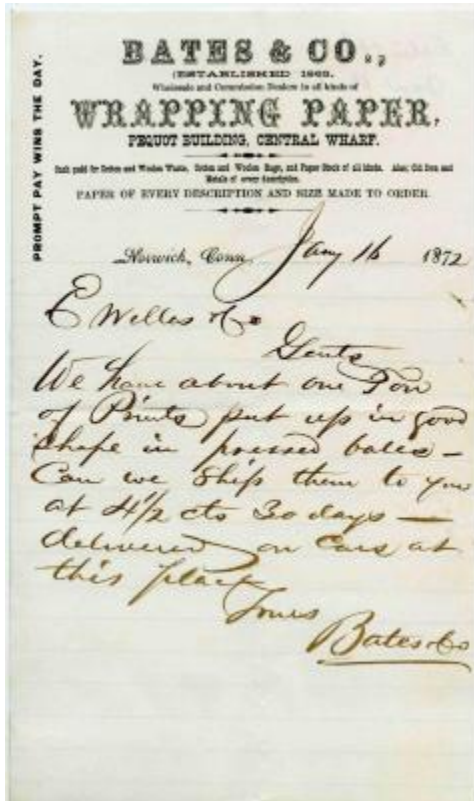 PROMPT PAY WINS THE DAY.
BATES & CO.,
(ESTABLISHED 1865.
Wholesale and Commission Dealers in all kinds of
WRAPPING PAPER,
PEQUOT BUILDING, CENTRAL WHARF.
Cash paid for Cotton and Woolen Waste, Cotton and Woolen Rags, and Paper Stock of all kinds. Also, Old Iron and
Metals of every description.
PAPER OF EVERY DESCRIPTION AND SIZE MADE TO ORDER.
Norwich, Conn. Jany 16 1872
E Welles & Co
Gents
We have about one Ton
of Prints put up in good
shape in pressed bales —
Can we ship them to you
at 4 1/2 cts 30 days —
delivered on Cars at
this place
Yours
Bates & Co